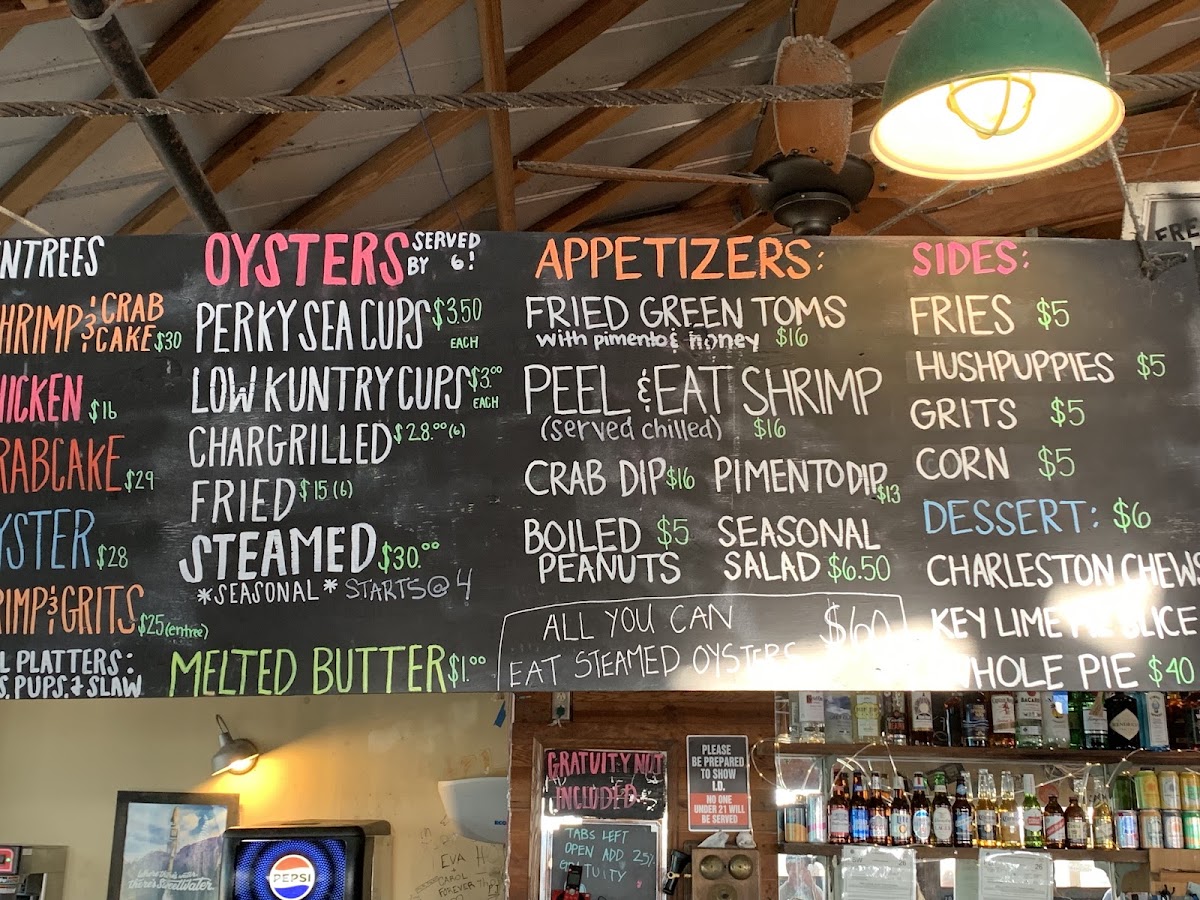 NTREES
HRIMP & CRAB CAKE $30
HICKEN $16
RABCAKE $29
YSTER $28
RIMP & GRITS $25 (entree)
L PLATTERS:
S, PUPS, & SLAW
OYSTERS SERVED BY 6!
PERKY SEA CUPS $3.50 EACH
LOW KUNTRY CUPS $3.00 EACH
CHARGRILLED $28.00 (6)
FRIED $15 (6)
STEAMED $30.00
*SEASONAL* STARTS @ 4
MELTED BUTTER $1.00
APPETIZERS:
FRIED GREEN TOMS
with pimento & honey $16
PEEL & EAT SHRIMP
(served chilled) $16
CRAB DIP $16
PIMENTO DIP $13
BOILED $5
PEANUTS
SEASONAL
SALAD $6.50
ALL YOU CAN $60
EAT STEAMED OYSTERS
SIDES:
FRIES $5
HUSHPUPPIES $5
GRITS $5
CORN $5
DESSERT: $6
CHARLESTON CHEWS
KEY LIME PIE SLICE
WHOLE PIE $40
FRE
GRATUITY NOT
INCLUDED
TABS LEFT
OPEN ADD 25%
GRATUITY
PLEASE
BE PREPARED
TO SHOW
I.D.
NO ONE
UNDER 21 WILL
BE SERVED
there's Sweetwater.
PEPSI
EVA
CAROL
FOREVER